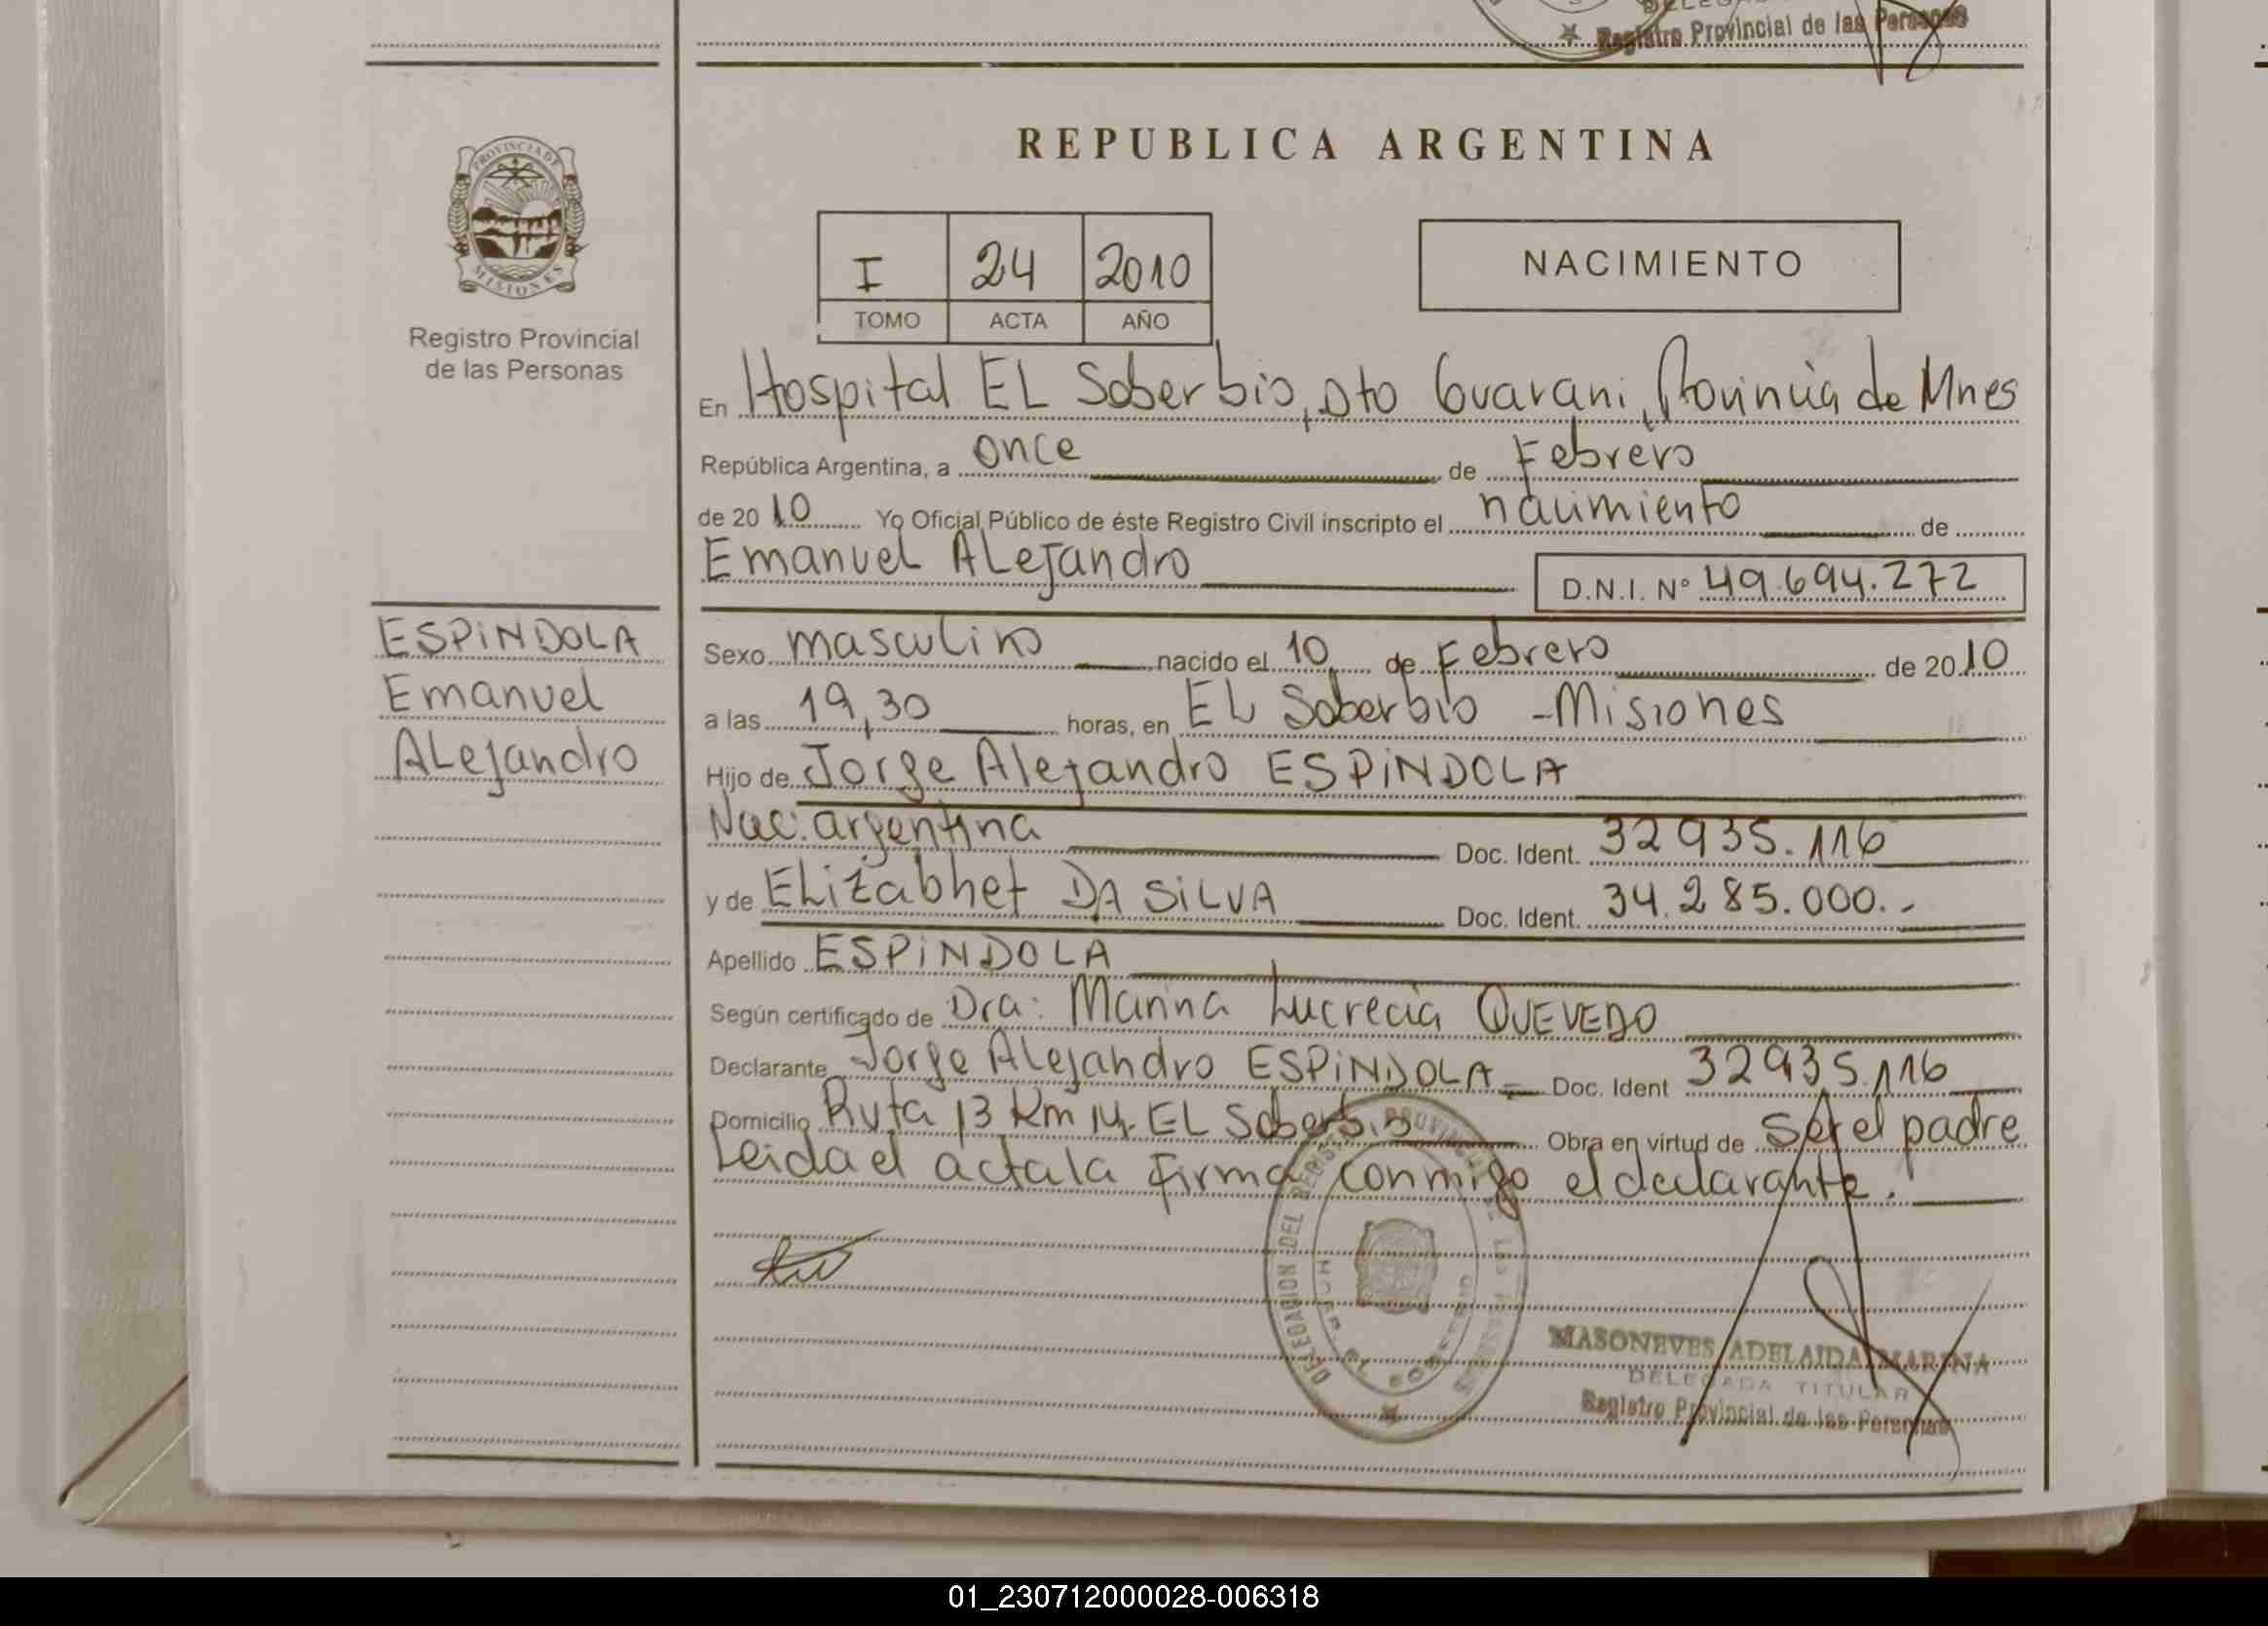 Registro Provincial de las Personas
PROVINCIA DE
MISIONES
Registro Provincial
de las Personas
REPUBLICA ARGENTINA
I 24 2010
TOMO ACTA AÑO
NACIMIENTO
En Hospital EL Soberbio, Dto Guarani, Provincia de Mnes
República Argentina, a once de Febrero
de 2010 Yo Oficial Público de éste Registro Civil inscripto el nacimiento de
Emanuel ALejandro D.N.I. Nº 49.694.272
ESPINDOLA
Emanuel
ALejandro
Sexo masculino nacido el 10 de Febrero de 2010
a las 19,30 horas, en EL Soberbio - Misiones
Hijo de Jorge Alejandro ESPINDOLA
Nac. argentina Doc. Ident. 32935.116
y de ELizabhet DA SILVA Doc. Ident. 34.285.000.-
Apellido ESPINDOLA
Según certificado de Dra: Marina Lucrecia QUEVEDO
Declarante Jorge Alejandro ESPINDOLA Doc. Ident 32935.116
Domicilio Ruta 13 Km 14. EL Soberbio Obra en virtud de ser el padre
Leida el acta la firma conmigo el declarante.
DELEGACION DEL REGISTRO PROVINCIAL DE LAS PERSONAS
EL SOBERBIO
MASONEVES ADELAIDA MARINA
DELEGADA TITULAR
Registro Provincial de las Personas
01_230712000028-006318